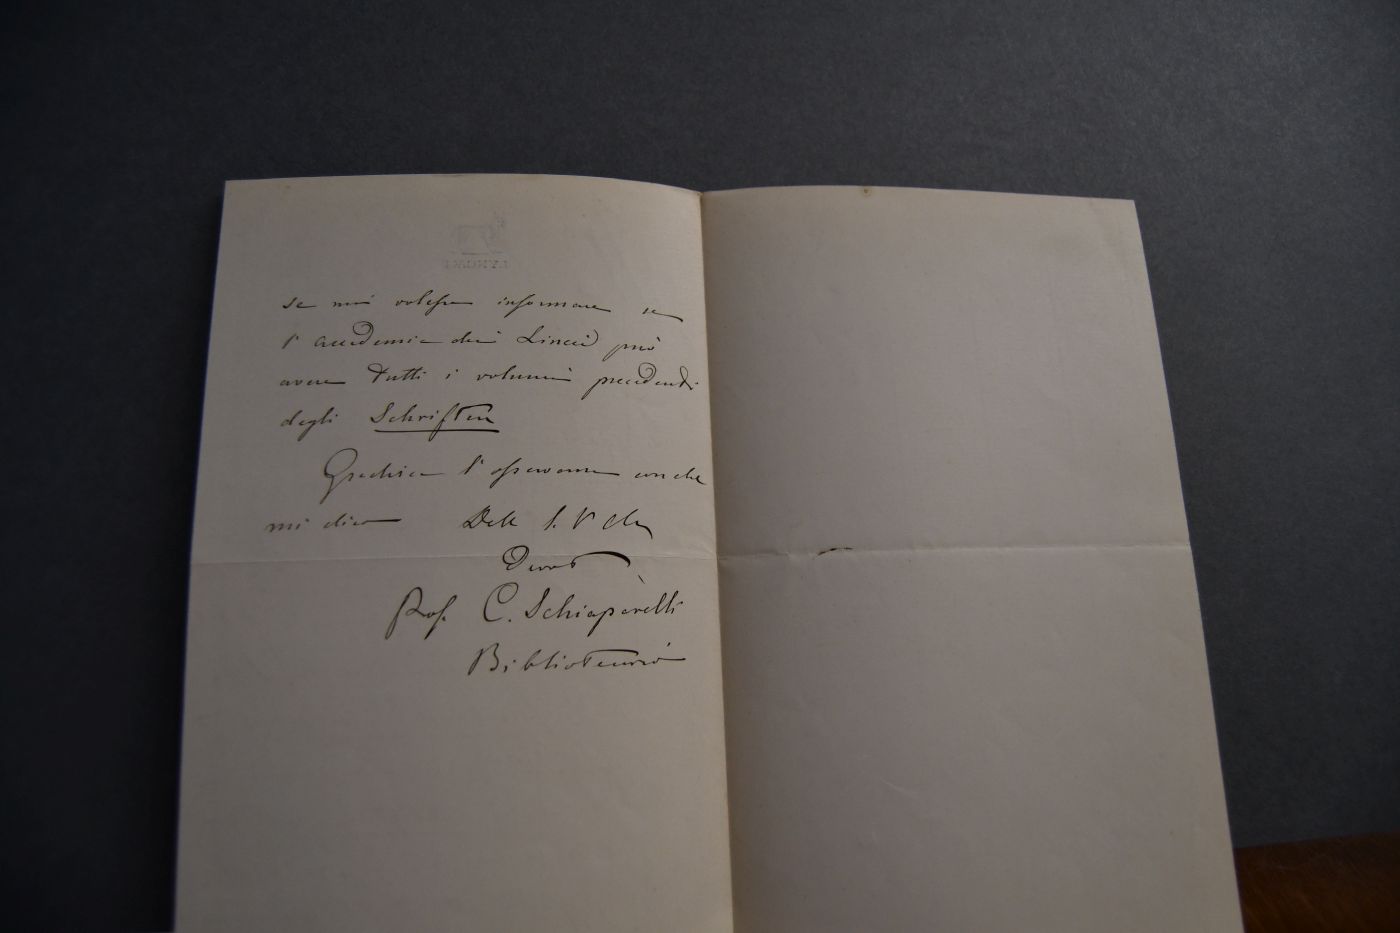 se mi volesse informare se
l'accademia dei Lincei può
avere tutti i volumi precedenti
degli Schriften
Gradisca l'osservanza con che
mi dico Della S. V. Ch.
Devot
Prof. C. Schiaparelli
Bibliotecario